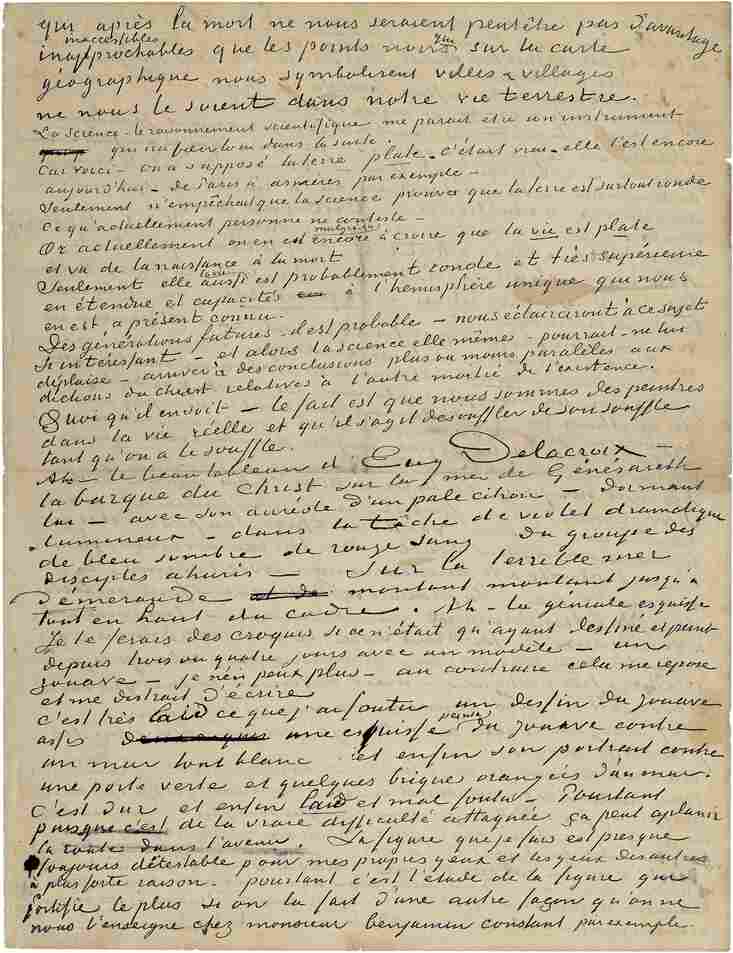 qui après la mort ne nous seraient peutêtre pas d'avantage
inaccessibles
inapprochables que les points noirs qui sur la carte
géographique nous symbolisent villes & villages
ne nous le soient dans notre vie terrestre.
La science – le raisonnement scientifique me parait être un instrument
qui ira fier loin dans la suite.
Car voici – on a supposé la terre plate – c'était vrai – elle l'est encore
aujourd'hui – de Paris à Asnières par exemple –
Seulement n'empêche que la science prouve que la terre est surtout ronde
Ce qu'actuellement personne ne conteste –
Or actuellement on en est encore malgré ça à croire que la vie est plate
et va de la naissance à la mort
Seulement elle aussi la vie est probablement ronde et très supérieure
en étendue et capacités à l'hémisphère unique qui nous
en est à présent connu.
Des générations futures – il est probable – nous éclairciront à ce sujet
si intéressant – et alors la science elle-même – pourrait – ne lui
déplaise – arriver à des conclusions plus ou moins parallèles aux
dictons du Christ relatives à l'autre moitié de l'existence.
Quoi qu'il en soit – le fait est que nous sommes des peintres
dans la vie réelle et qu'il s'agit de souffler de son souffle
tant qu'on a le souffle.
Ah – le beau tableau d'Eug Delacroix –
la barque du Christ sur la mer de Génésareth
lui – avec son auréole d'un pale citron – dormant
lumineux – dans la tâche de violet dramatique
de bleu sombre de rouge sang du groupe des
disciples ahuris – sur la terrible mer
d'émeraude montant montant jusqu'à
tout en haut du cadre. Ah – la géniale esquisse
Je te ferais des croquis si ce n'était qu'ayant dessiné et peint
depuis trois ou quatre jours avec un modèle – un
zouave – je n'en peux plus – au contraire cela me repose
et me distrait d'écrire
C'est très laid ce que j'ai foutu un dessin du zouave
assis une esquisse peinte du zouave contre
un mur tout blanc et enfin son portrait contre
une porte verte et quelques briques orangées d'un mur.
C'est dur et enfin laid et mal foutu – Pourtant
puisque c'est de la vraie difficulté attaquée ça peut aplanir
la route dans l'avenir. La figure que je fais est presque
toujours détestable pour mes propres yeux et les yeux des autres
à plus forte raison. pourtant c'est l'étude de la figure qui
fortifie le plus si on la fait d'une autre façon qu'on ne
nous l'enseigne chez monsieur benjamin constant par exemple.